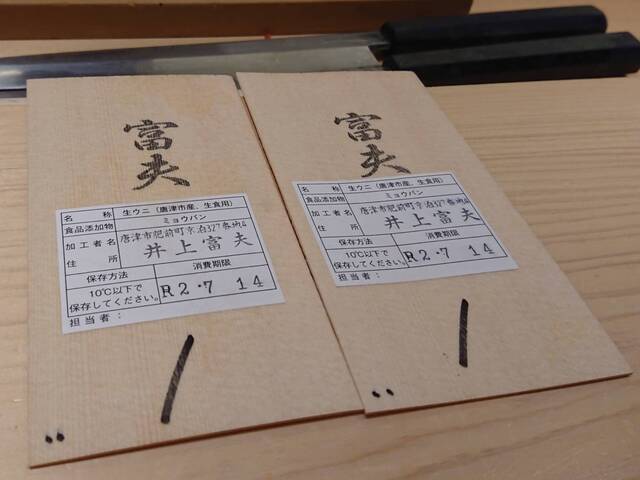 富
夫
名 称 生ウニ（唐津市産、生食用）
食品添加物 ミョウバン
加工者名 住所 唐津市肥前町京泊327番地4
井上富夫
保存方法 消費期限
10℃以下で
保存してください。 R2.7 14
担当者：
富
夫
名 称 生ウニ（唐津市産、生食用）
食品添加物 ミョウバン
加工者名 住所 唐津市肥前町京泊327番地4
井上富夫
保存方法 消費期限
10℃以下で
保存してください。 R2.7 14
担当者：